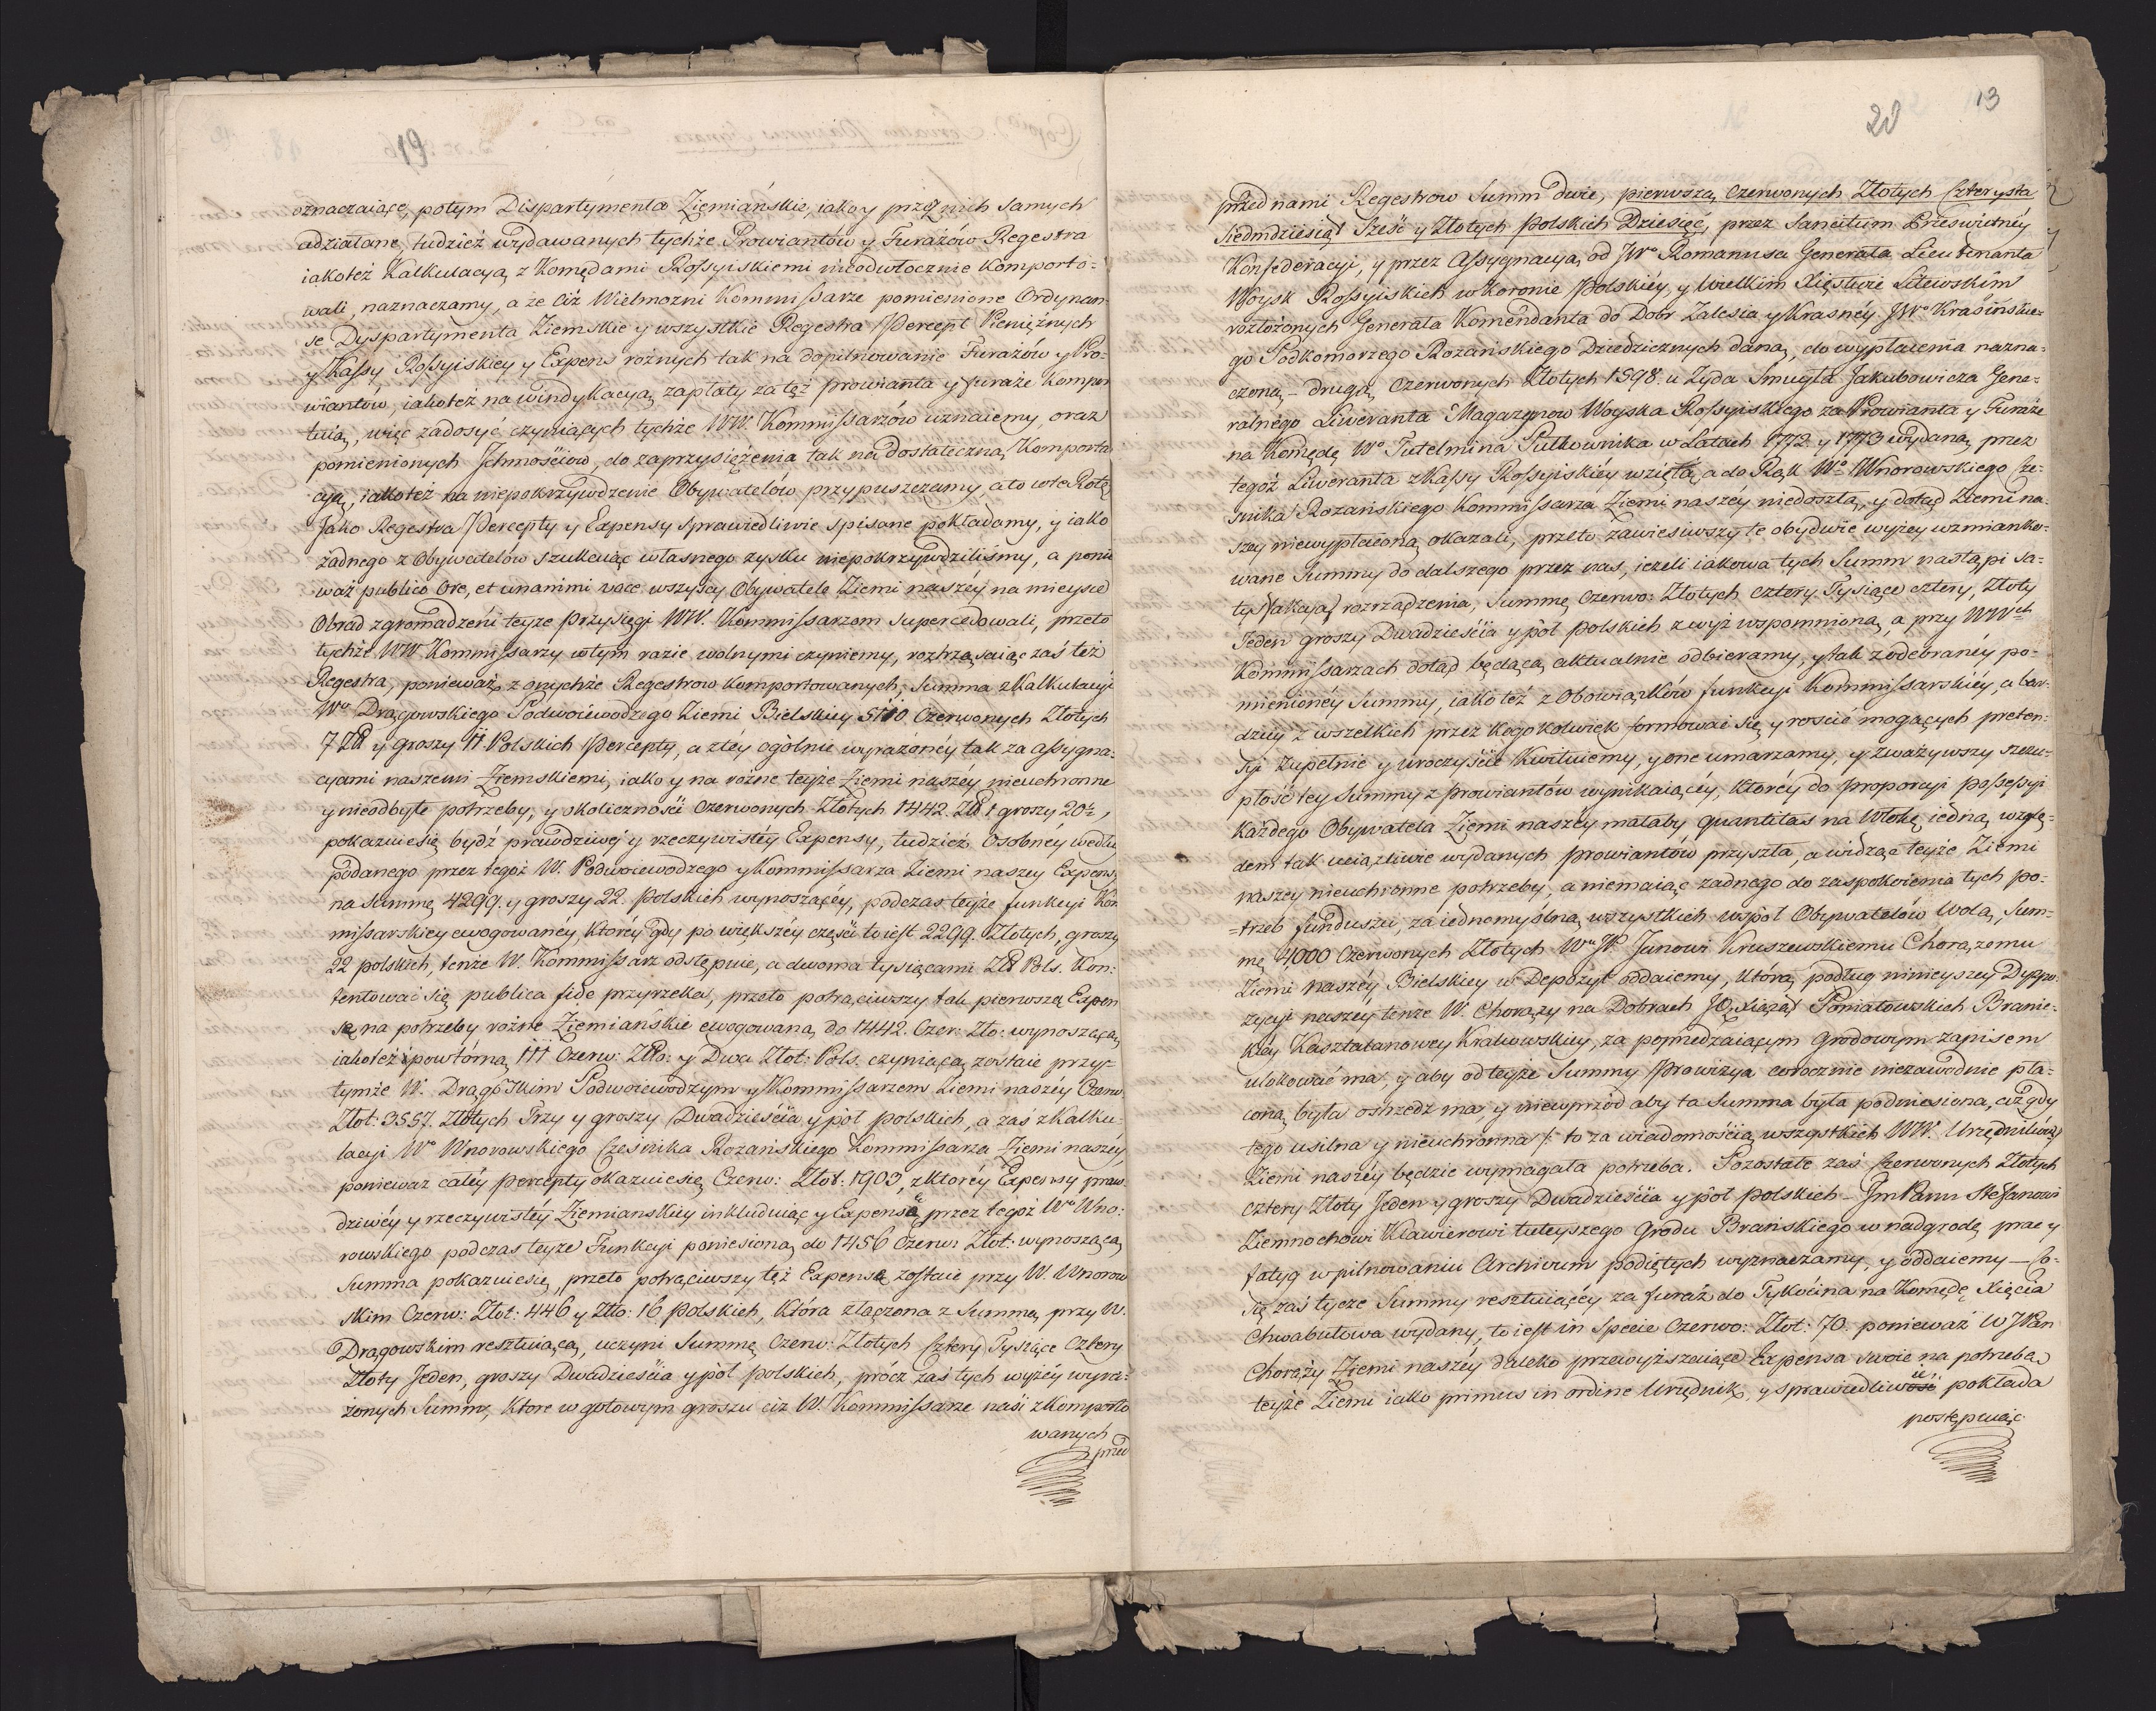 19
oznaczaiące, potym Dispartymenta Ziemiańskie, iako y przez nich samych
adziałane, tudzież wydawanych tychże Prowiantow y Furażow Regestra
iakoteż Kalkulacyą z Komędami Rossyiskiemi nieodwłocznie komporto-
wali, naznaczamy, a że Ciż Wielmozni Kommissarze pomienione Ordynan-
se Dyspartymenta Ziemskie y wszystkie Regestra Percept Pieniężnych
y Kassy Rossyiskiey y Expens rożnych tak na dopilnowanie Furażów y Pro-
wiantów, iakoteż na windykacyą zapłaty za tęż prowianta y furaże kompor
tuią, więc zadosyć czyniących tychże WW. Kommissarzów uznaiemy, oraz
pomienionych Ichmościow, do zaprzysiężenia tak na dostateczną Komporta
cyą, iakoteż na niepokrzywdzenie Obywatelów przypuszczamy, a to w te Rotę
Jako Regestra Percepty y Expensy sprawiedliwie spisane pokładamy, y iako
żadnego z Obywatelów szukaiąc własnego zysku niepokrzywdziliśmy, a ponie
waż publico Ore, et unanimi voce wszyscy Obywatele Ziemi naszéy na mieysce
Obrad zgromadzeni teyże przysięgi WW. Kommissarzom supercedowali, przeto
tychże WW Kommissarzy w tym razie wolnymi czyniemy, roztrząsaiąc zaś też
Regestra, ponieważ z onychże Regestrow komportowanych, Summa z Kalkulacyi
Wo Drągowskiego Podwoiewodzego Ziemi Bielskiey 5110 Czerwonych Złotych
7 Zł y groszy 11 Polskich Percepty, a z téy ogólnie wyrażonéy tak za assygna-
cyami naszemi Ziemskiemi, iako y na rożne teyże Ziemi naszéy nieuchronne
y nieodbyte potrzeby, y okoliczności Czerwonych Złotych 1442. Zł 1 groszy 20½,
pokazuiesię bydź prawdziwéy y rzeczywistéy Expensy, tudzież osobnéy wedlu
podanego przez tegoż W. Podwoiewodzego y Kommissarza Ziemi naszey Expensy
na summę 4299. y groszy 22. Polskich wynoszącéy, podczas teyże funkcyi Kom
missarskiey ewogowanéy, któréy gdy po większéy części to iest 2299. Złotych, groszy
22 polskich, tenże W. Kommissarz odstępuie, a dwoma tysiącami Zł Pols. Kon-
tentować się publica fide przyrzeka, przeto potrąciwszy tak pierwszą Expen
sę na potrzeby rożne Ziemiańskie ewogowaną do 1442. Czer: Zło: wynoszącą,
iakoteż y powtórną, 111 Czerw: Zło: y Dwa Złot: Pols. czyniącą, zostaie przy-
tymże W. Drągowskim Podwoiewodzym y Kommissarzem Ziemi naszéy Czerw:
Złot: 3557. Złotych Trzy y groszy Dwadzieścia y pół polskich, a zaś z Kalku-
lacyi Wo Wnorowskiego Cześnika Rożańskiego Kommissarza Ziemi naszéy,
ponieważ całéy percepty okazuiesię Czerw: Złot: 1903, z ktoréy Expensy praw-
dziwéy y rzeczywistéy Ziemianskiey inkluduiąc y Expensę przez tegoż Wo Wno-
rowskiego podczas teyże Funkcyi poniesioną do 1456 Czerw: Złot: wynoszącą
summa pokazuiesię, przeto potrąciwszy tęż Expensę zostaie przy W. Wnorow
skim Czerw: Złot: 446 y Zło. 16 polskich, która złączona z Summą, przy W.
Drągowskim resztuiącą, uczyni Summę Czerw: Złotych Cztery Tysiące Cztery
Złoty Jeden, groszy Dwadzieścia y pół polskich, prócz zaś tych wyżéy wyra-
żonych Summ, ktore w gotowym groszu ciż W. Kommissarze nasi z komporto
wanych
przed
20
13
przed nami Regestrow Summ dwie, pierwszą Czerwonych Złotych Czterysta
Siedmdziesiąt Sześć y Złotych Polskich Dziesięć, przez Sancitum Prześwietnéy
Konfederacyi, y przez Assygnacyą od JWo Romanusa Generała Lieutenanta
Woysk Rossyiskich w Koronie Polskiéy y Wielkim Xięstwie Litewskim
rozłożonych Generała Komendanta do Dobr Zalesia y Krasnéy JWo Krasińskie-
go Podkomorzego Rozańskiego Dziedzicznych daną, do wypłacenia nazna-
czoną, – drugą Czerwonych Złotych 1598. u Żyda Smugła Jakubowicza Gene-
ralnego Liweranta Magazynow Woyska Rossyiskiego za Prowianta y Furaże
na Komędę Wo Tutelmina Pułkownika w Latach 1772 y 1773 wydaną, przez
tegoż Liweranta z Kassy Rossyiskiéy wziętą, a do Rąk Wo Wnorowskiego Cze-
śnika Rozańskiego Kommissarza Ziemi naszéy niedoszłą, y dotąd Ziemi na-
szey niewypłaconą okazali, przeto zawiesiwszy te obydwie wyżey wzmianko-
wane Summy do dalszego przez nas, ieżeli iakowa tych Summ nastąpi sa-
tysfakcya, rozrządzenia, Summę Czerwo: Złotych cztery Tysiące cztery, Złoty
Jeden groszy Dwadzieścia y pół polskich zwyż wspomnioną, a przy WWch
Kommissarzach dotąd będącą aktualnie odbieramy, y tak z odebranéy po-
mienionéy Summy, iako też z Obowiązków funkcyi Kommissarskiéy, a bar-
dziey z wszelkich przez kogokolwiek formować się, y rościć mogących preten-
syi zupełnie y uroczyście Kwituiemy, y one umarzamy, y zważywszy szczu-
płość tey Summy z prowiantów wynikaiącéy, ktoréy do proporcyi possessyi
każdego Obywatela Ziemi naszéy małaby quantitas na Włokę iedną wzglę-
dem tak uciążliwie wydanych prowiantów przyszła, a widząc teyże Ziemi
naszey nieuchronne potrzeby, a niemaiąc żadnego do zaspokoienia tych po-
-trzeb funduszu, za iednomyślną wszystkich współ Obywatelów Wolą, Sum-
mę 4,000 Czerwonych Złotych Wmu JP. Janowi Kruszewskiemu Chorążemu
Ziemi naszéy Bielskiey w Depozyt oddaiemy, którą podług ninieyszey Dyspo-
zycyi naszey tenże W. Chorąży na Dobrach JO. Xiążąt Poniatowskich Branic-
kiéy Kasztelanowey Krakowskiey, za poprzedzaiącym Grodowym zapisem
ulokować ma, y aby od teyże Summy Prowizya corocznie niezawodnie pła-
cona była ostrzedz ma, y niewprzód aby ta Summa była podniesiona, aż gdy
tego usilna y nieuchronna /: to za wiadomością wszystkich WW. Urzędników
Ziemi naszéy będzie wymagała potrzeba. Pozostałe zaś Czerwonych Złotych
cztery Złoty Jeden y groszy Dwadzieścia y pół polskich – Jm Panu Stefanowi
Ziemnochowi Klawierowi tuteyszego Grodu Brańskiego w nadgrodę prac y
fatyg w pilnowaniu Archivum podiętych wyznaczamy, y oddaiemy – Co-
się zaś tycze Summy resztuiącéy za furaż do Tykocina na Komędę Xięcia
Chwabulowa wydany, to iest in Specie Czerwo: Złot: 70. ponieważ WJPan
Chorąży Ziemi naszéy daleko przewyższaiące Expensa swoie na potrzeba
teyże Ziemi iako primus in ordine Urzędnik, y sprawiedliwie pokłada
postępuiąc